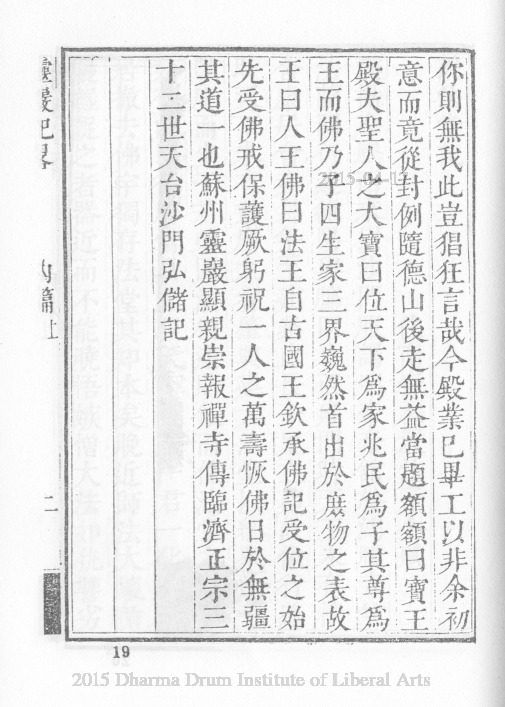 你則無我此豈猖狂言哉今殿業已畢工以非余初
意而竟從封例隨德山後走無益當題額額曰寶王
殿夫聖人之大寶曰位天下為家兆民為子其尊為
王而佛乃子四生家三界巍然首出於庶物之表故
王曰人王佛曰法王自古國王欽承佛記受位之始
先受佛戒保護厥躬祝一人之萬壽恢佛日於無疆
其道一也蘇州靈巖顯親崇報禪寺傳臨濟正宗三
十三世天台沙門弘儲記
靈巖記畧
內篇上
二
19
2015 Dharma Drum Institute of Liberal Arts